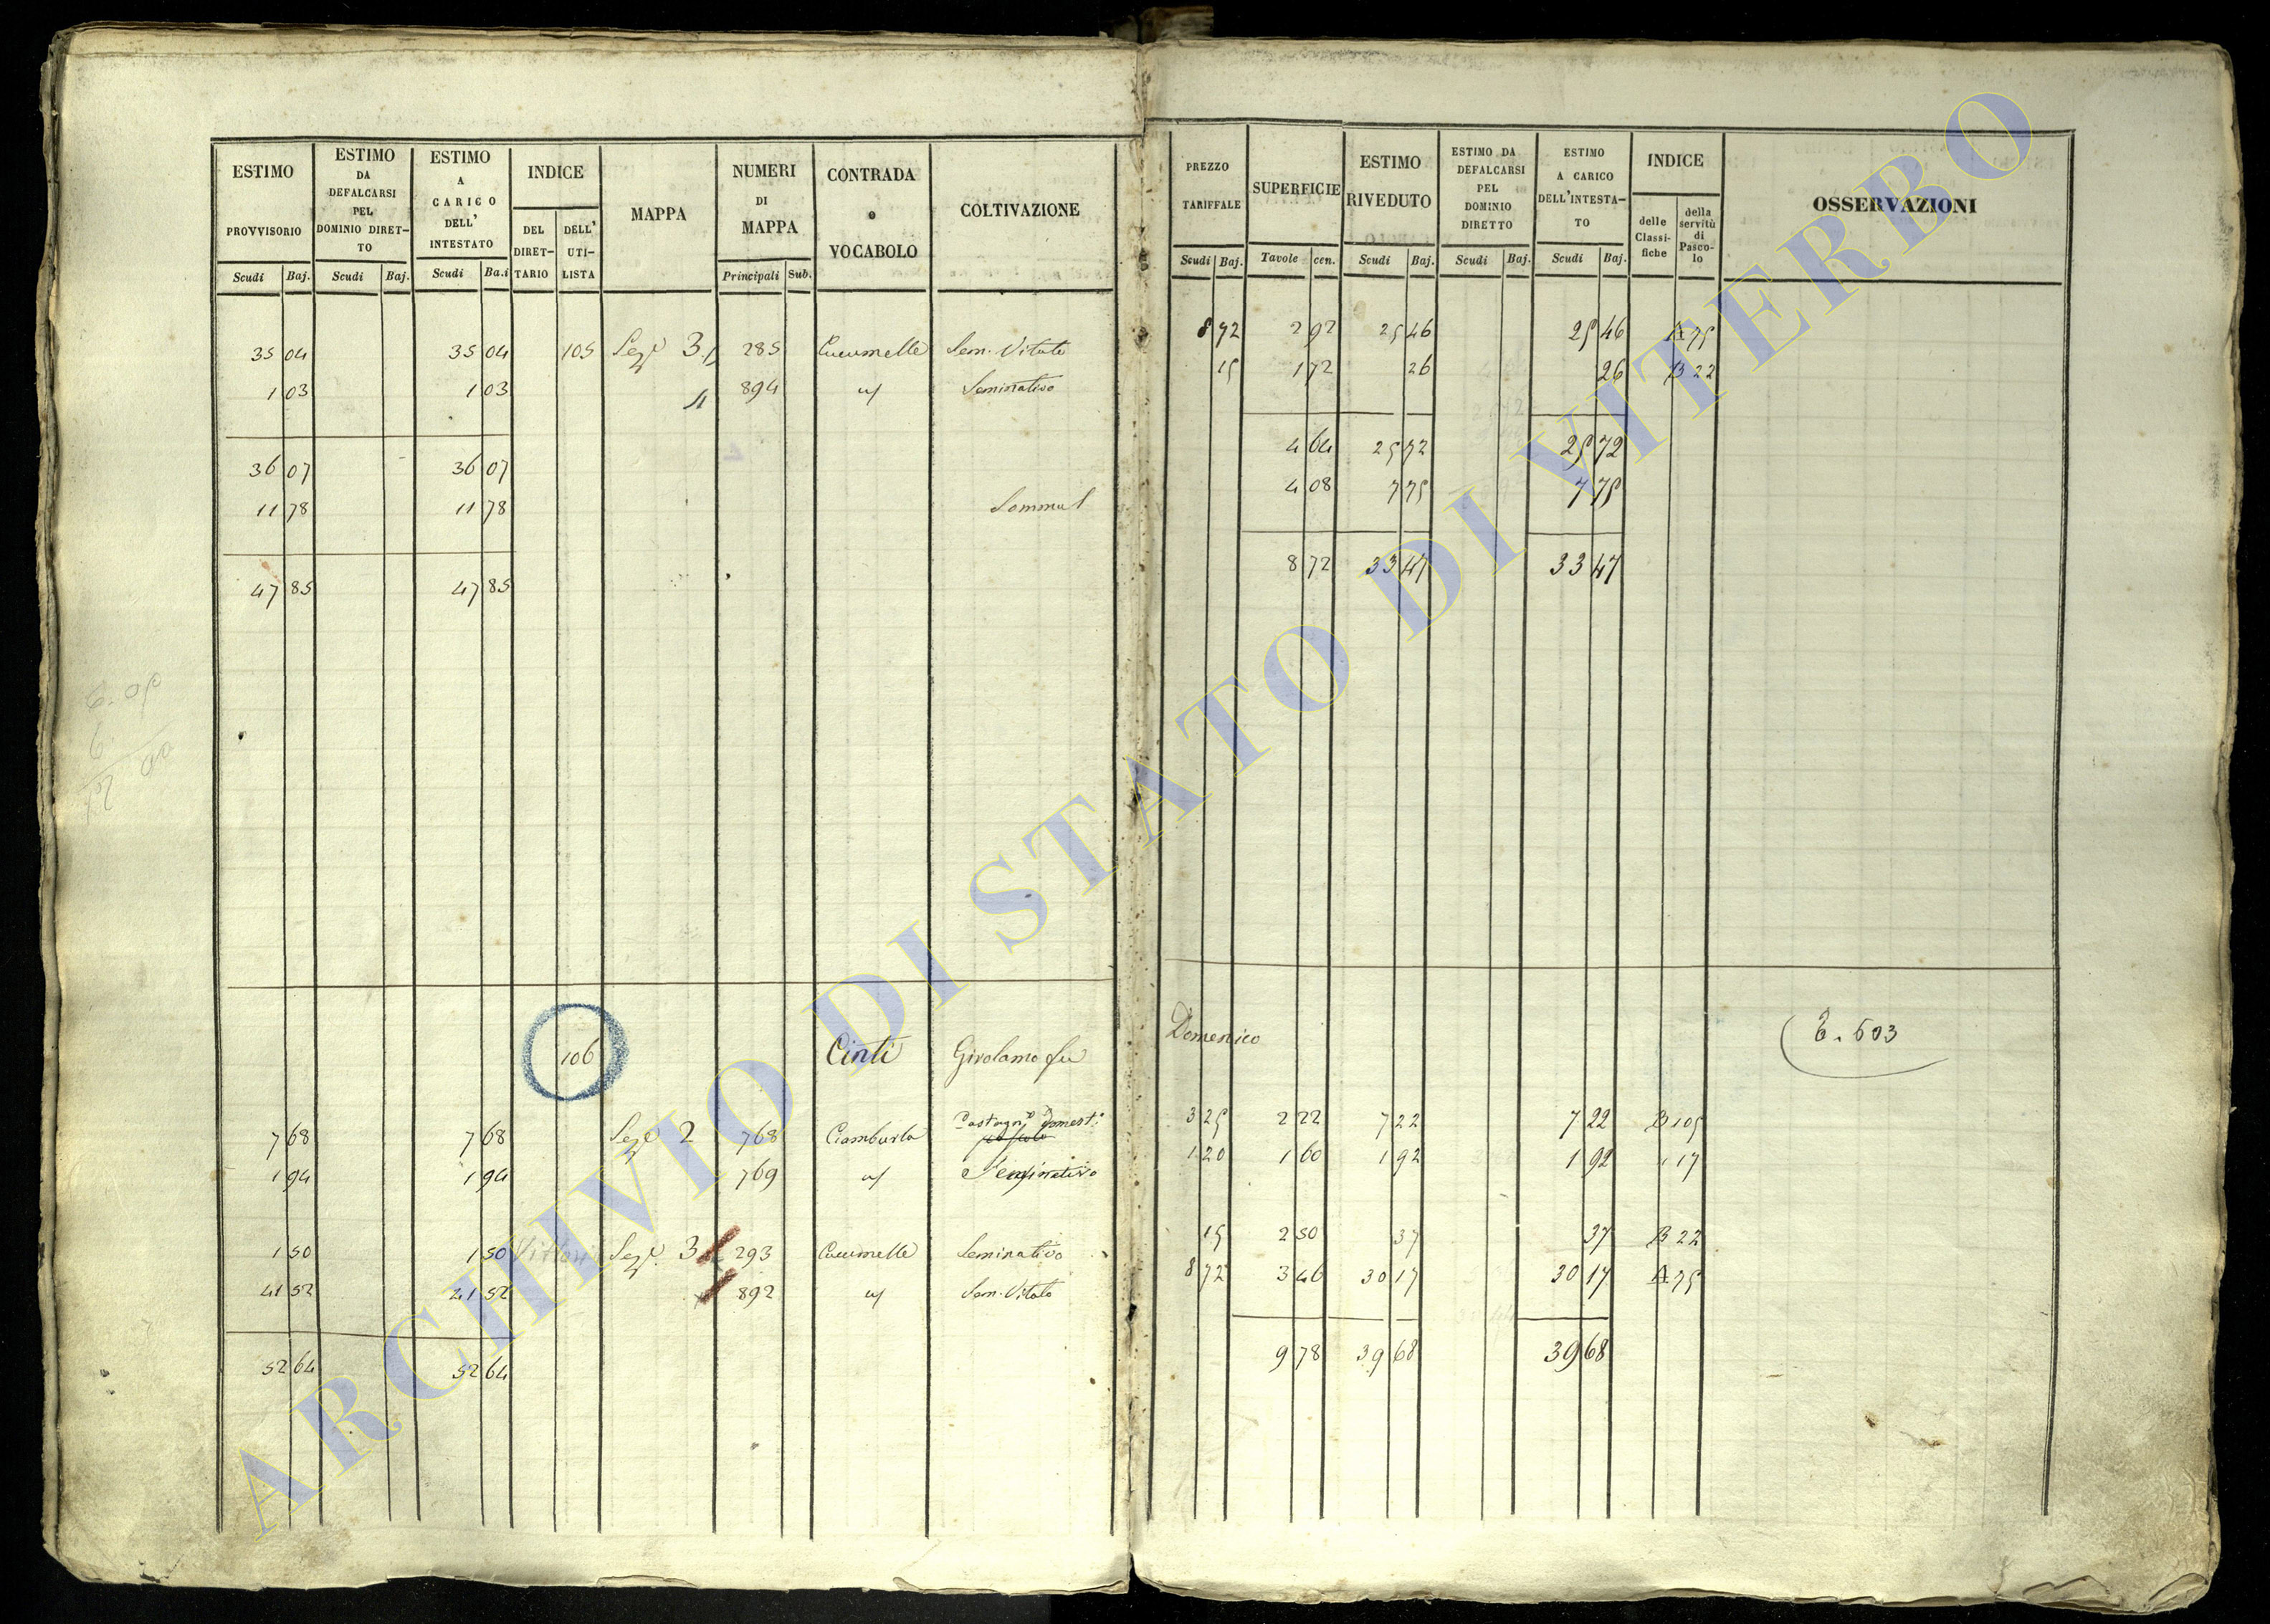 ESTIMO PROVVISORIO
ESTIMO DA DEFALCARSI PEL DOMINIO DIRETTO
ESTIMO A CARICO DELL' INTESTATO
INDICE
DEL DIRETTARIO
DELL' UTILISTA
MAPPA
NUMERI DI MAPPA
CONTRADA o VOCABOLO
COLTIVAZIONE
PREZZO TARIFFALE
SUPERFICIE
ESTIMO RIVEDUTO
ESTIMO DA DEFALCARSI PEL DOMINIO DIRETTO
ESTIMO A CARICO DELL'INTESTATO
INDICE
delle Classifiche
della servitù di Pascolo
OSSERVAZIONI
Scudi Baj. Scudi Baj. Scudi Ba.i Principali Sub. Scudi Baj. Tavole cen. Scudi Baj. Scudi Baj. Scudi Baj.
35 04 35 04 105 Sezе 3 285 Cucumelle Sem. Vitato 8 72 2 92 25 46 25 46 A 75
1 03 1 03 894 Seminativo 15 1 72 26 26 B 22
36 07 36 07 4 64 25 72 25 72
11 78 11 78 4 08 7 75 7 75
47 85 47 85 8 72 33 47 33 47
106 Cinti Girolamo fu Domenico E. 603
7 68 7 68 Seze 2 768 Ciamburla Castagn° Domest° 3 25 2 22 7 22 7 22 B 105
1 94 1 94 769 Seminativo 1 20 1 60 1 92 1 92 17
1 50 1 50 Vittori Seze 3 293 Cucumelle Seminativo 15 2 50 37 37 B 22
41 52 41 52 892 Sem. Vitato 8 72 3 46 30 17 30 17 A 75
52 64 52 64 9 78 39 68 39 68
ARCHIVIO DI STATO DI VITERBO